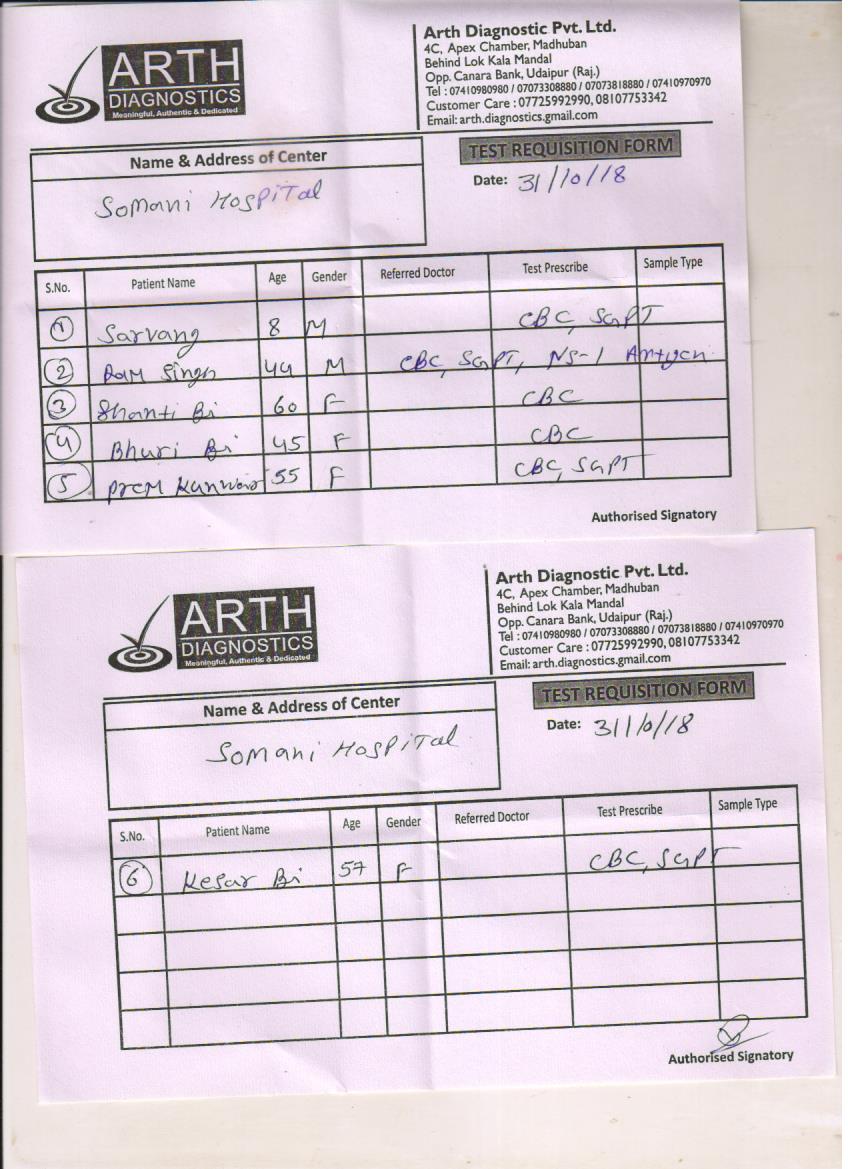 ARTH
DIAGNOSTICS
Meaningful, Authentic & Dedicated
Arth Diagnostic Pvt. Ltd.
4C, Apex Chamber, Madhuban
Behind Lok Kala Mandal
Opp. Canara Bank, Udaipur (Raj.)
Tel : 07410980980 / 07073308880 / 07073818880 / 07410970970
Customer Care : 07725992990, 08107753342
Email: arth.diagnostics.gmail.com
Name & Address of Center
TEST REQUISITION FORM
Somani Hospital
Date: 31/10/18
S.No. Patient Name Age Gender Referred Doctor Test Prescribe Sample Type
1 Sarvang 8 M CBC, SGPT
2 Ram Singh 44 M CBC, SGPT, NS-1 Antigen
3 Shanti Bi 60 F CBC
4 Bhuri Bi 45 F CBC
5 Prem Kunwar 55 F CBC, SGPT
Authorised Signatory
ARTH
DIAGNOSTICS
Meaningful, Authentic & Dedicated
Arth Diagnostic Pvt. Ltd.
4C, Apex Chamber, Madhuban
Behind Lok Kala Mandal
Opp. Canara Bank, Udaipur (Raj.)
Tel : 07410980980 / 07073308880 / 07073818880 / 07410970970
Customer Care : 07725992990, 08107753342
Email: arth.diagnostics.gmail.com
Name & Address of Center
TEST REQUISITION FORM
Somani Hospital
Date: 31/10/18
S.No. Patient Name Age Gender Referred Doctor Test Prescribe Sample Type
6 Kesar Bi 57 F CBC, SGPT
Authorised Signatory